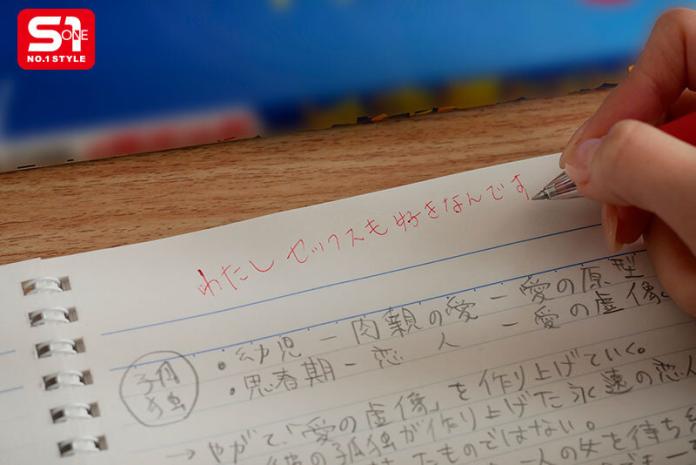 S1
ONE
NO.1 STYLE
わたし セックスも 好きなんです
・幼児 ー 肉親の愛 ー 愛の原型
・思春期 ー 恋 人 ー 愛の虚像。
孤独
→ やがて「愛の虚像」を作り上げていく。
の孤独が作り上げた永遠の恋人
たものではない。
一人の女を待ち